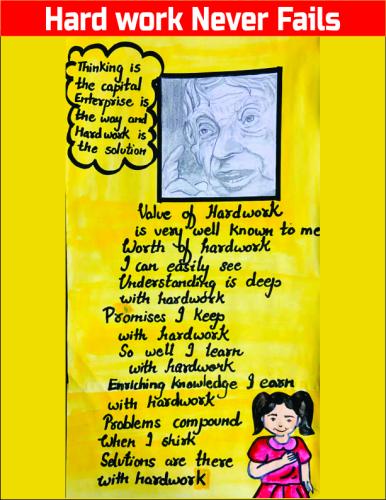 Hard work Never Fails
Thinking is
the capital
Enterprise is
the way and
Hardwork is
the solution
Value of Hardwork
is very well known to me
Worth of hardwork
I can easily see
Understanding is deep
with hardwork
Promises I keep
with hardwork
So well I learn
with hardwork
Enriching knowledge I earn
with Hardwork
Problems compound
When I shirk
Solutions are there
with hardwork